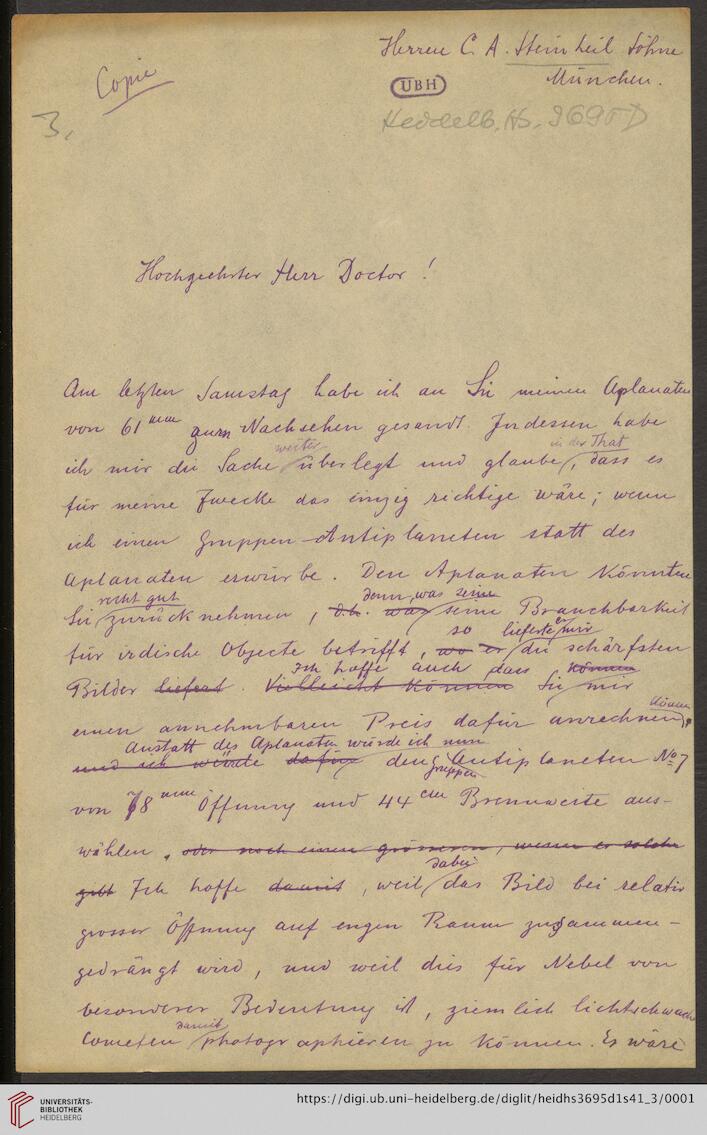 Herren C. A. Steinheil Söhne
Copie
München.
UBH
3,
Heidelb. Hs. 3695 D
Hochgeehrter Herr Doctor !
Am letzten Samstag habe ich an Sie meinen Aplanaten
von 61 mm zum Nachsehen gesandt. Indessen habe
weiter in der That
ich mir die Sache überlegt und glaube, dass es
für meine Zwecke das einzig richtige wäre; wenn
ich einen Gruppen-Antiplaneten statt des
Aplanaten erwürbe. Den Aplanaten könnten
recht gut denn, was seine
Sie zurück nehmen, d.h. was seine Brauchbarkeit
so lieferte er mir
für irdische Objecte betrifft, wo er die schärfsten
Ich hoffe auch dass können
Bilder liefert. Vielleicht können Sie mir
einen annehmbaren Preis dafür anrechnen können.
Anstatt des Aplanaten würde ich nun
und ich würde dafür den Antiplaneten No 7
Gruppen
von 78 mm Öffnung und 44 cm Brennweite aus-
wählen, oder noch einen grösseren, wenn er solche
dabei
gibt Ich hoffe damit, weil das Bild bei relativ
grosser Öffnung auf engen Raum zusammen-
gedrängt wird, und weil dies für Nebel von
besonderer Bedeutung ist, ziemlich lichtschwache
damit
Cometen photographieren zu können. Es wäre
UNIVERSITÄTS-
BIBLIOTHEK
HEIDELBERG
https://digi.ub.uni-heidelberg.de/diglit/heidhs3695d1s41_3/0001